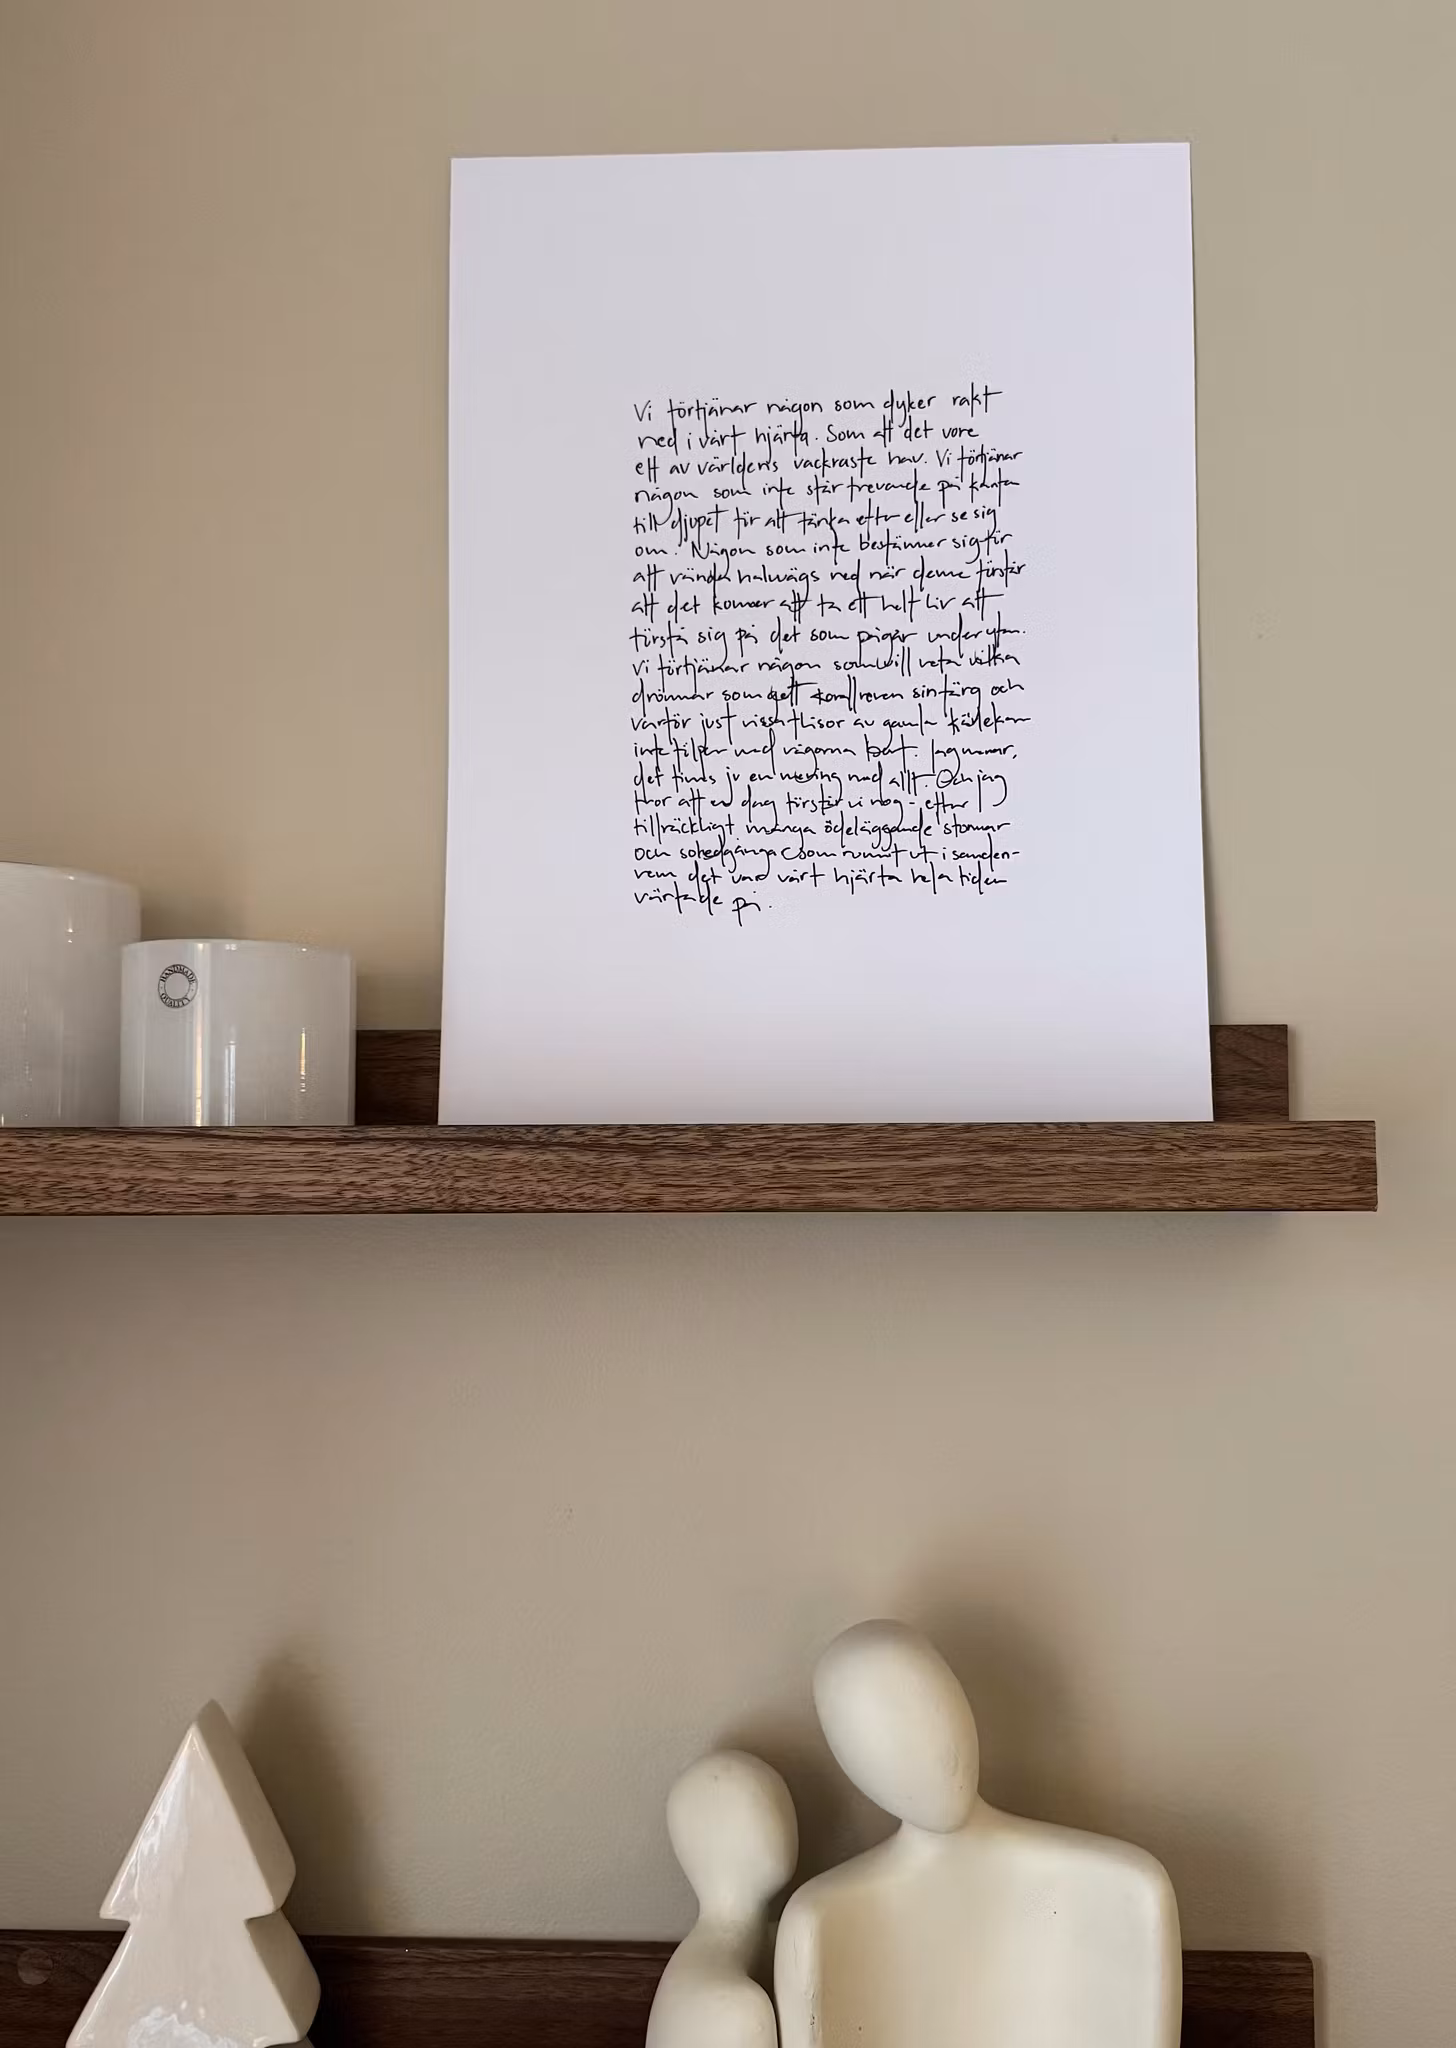 Vi förtjänar någon som dyker rakt
ned i vårt hjärta. Som att det vore
ett av världens vackraste hav. Vi förtjänar
någon som inte står trevande på kanten
till djupet för att tänka efter eller se sig
om. Någon som inte bestämmer sig för
att vända halvvägs ned när denne förstår
att det kommer att ta ett helt liv att
förstå sig på det som pågår under ytan.
Vi förtjänar någon som vill veta vilka
drömmar som gett korallreven sin färg och
varför just vissa flisor av gamla kärlekar
inte följer med vågorna bort. Jag menar,
det finns ju en mening med allt. Och jag
tror att en dag förstår vi nog - efter
tillräckligt många ödeläggande stormar
och som runnit ut i sanden -
vem det var vårt hjärta hela tiden
väntade på.
HANDMADE
QUALITY